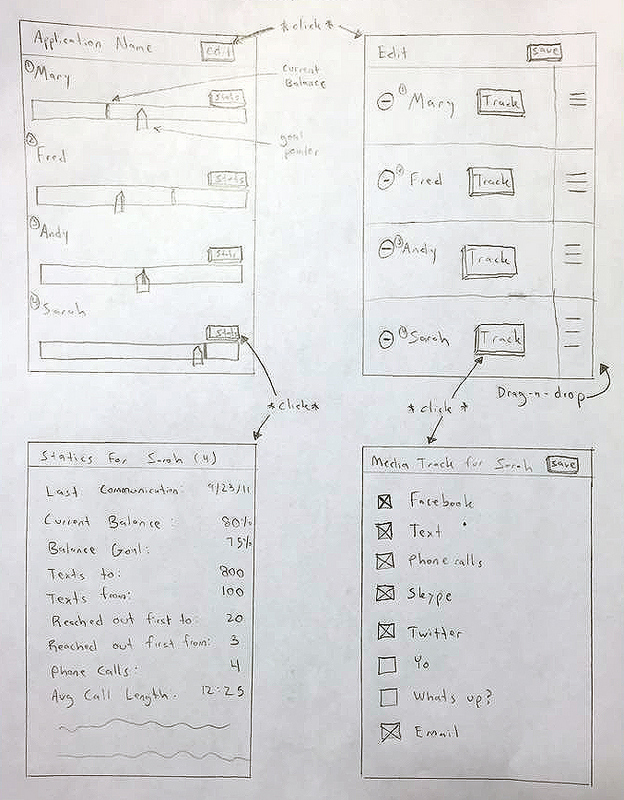 *click*
Application Name
Edit
① Mary
Stats
current
Balance
goal
pointer
② Fred
Stats
③ Andy
Stats
④ Sarah
Stats
Edit
save
① Mary
Track
② Fred
Track
③ Andy
Track
④ Sarah
Track
Drag-n-drop
*click*
*click *
Statics For Sarah (4)
Last Communication: 9/23/11
Current Balance : 80%
Balance Goal: 75%
Texts to: 800
Texts from: 100
Reached out first to: 20
Reached out first from: 3
Phone Calls: 4
Avg Call Length: 12:25
Media Track for Sarah
save
Facebook
Text
Phone calls
Skype
Twitter
Yo
Whats up?
Email